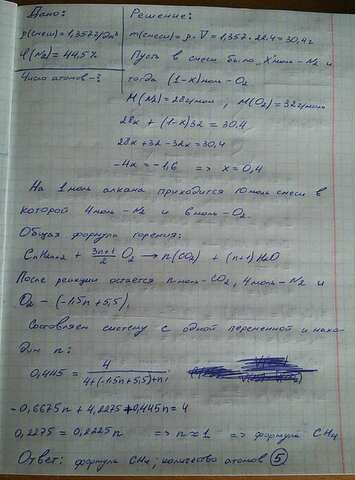 Дано:
ρ(смеси)=1,357г/дм³
φ(N₂)=44,5%
Число атомов-?
Решение:
m(смеси)=ρ·V=1,357·22.4=30,4г
Пусть в смеси было "X" моль-N₂ и
тогда (1-x)моль-O₂
M(N₂)=28г/моль, M(O₂)=32г/моль
28x+(1-x)32=30.4
28x+32-32x=30.4
-4x=-1,6 => x=0,4
На 1 моль алкана приходится 10 моль смеси в
которой 4 моль-N₂ и 6 моль-O₂.
Общая формула горения:
CnH2n+2 + 3n+1/2 O₂ → n(CO₂) + (n+1)H₂O
После реакции остаётся n моль-CO₂, 4 моль-N₂ и
O₂-(-1.5n+5,5).
Составляем систему с одной переменной и нахо-
дим n:
0,445 = 4/4+(-1.5n+5,5)+n;
-0,6675n+4,2275+0,445n=4
0,2275=0,2225n => n≈1 => формула CH₄
Ответ: формула CH₄; количество атомов 5